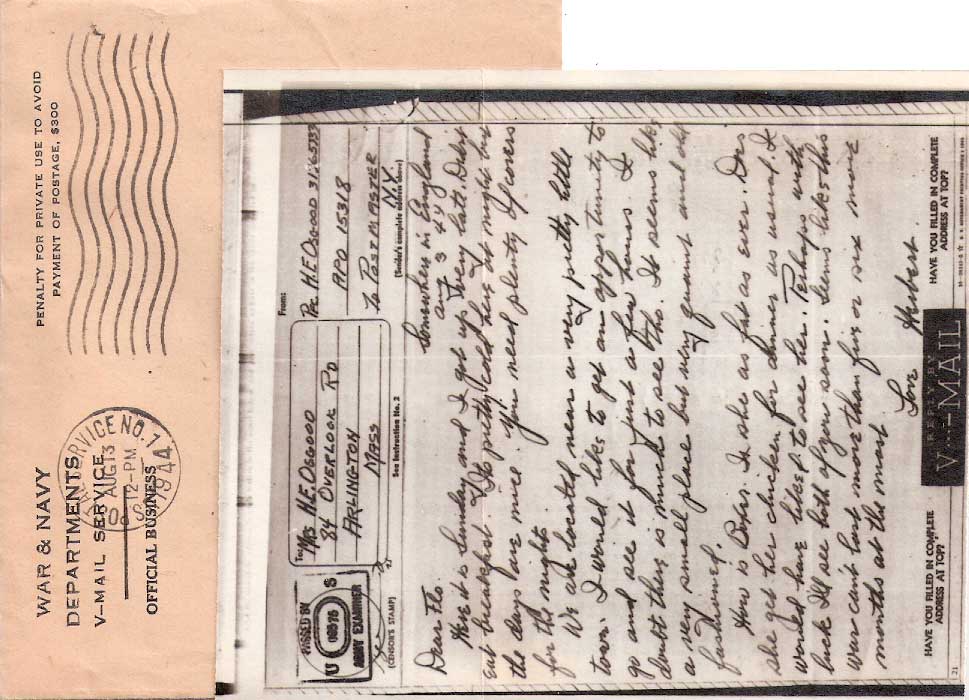 WAR & NAVY
DEPARTMENTS
V-MAIL SERVICE
OFFICIAL BUSINESS
PENALTY FOR PRIVATE USE TO AVOID
PAYMENT OF POSTAGE, $300
SERVICE NO. 1
AUG 13
12-PM
1944
PASSED BY
U S
ARMY EXAMINER
(CENSOR'S STAMP)
To: Mrs H.E. Osgood
84 Overlook Rd
Arlington
Mass
See Instruction No. 2
From:
Pvc H.E. Osgood
APO 1538
To Postmaster
N.Y.
(Sender's complete address above)
Somewhere in England
Aug 3 44
Dear Flo
Here it is Sunday and I got up very late. Didn't
eat breakfast. It's pretty cold here at night but
the days are nice. You need plenty of covers
for the night.
We are located near a very pretty little
town. I would like to get an opportunity to
go and see it for just a few hours. I
doubt there is much to see tho. It seems like
a very small please but very quaint and old
fashioned.
How is Babs. Is she as fat as ever. Does
she get her chicken for dinner as usual. I
would have liked to see her. Perhaps with
luck I'll see both of you soon. Seems like this
war cant last more than five or six more
months at the most
Love Herbert
HAVE YOU FILLED IN COMPLETE
ADDRESS AT TOP?
V···—MAIL
HAVE YOU FILLED IN COMPLETE
ADDRESS AT TOP?